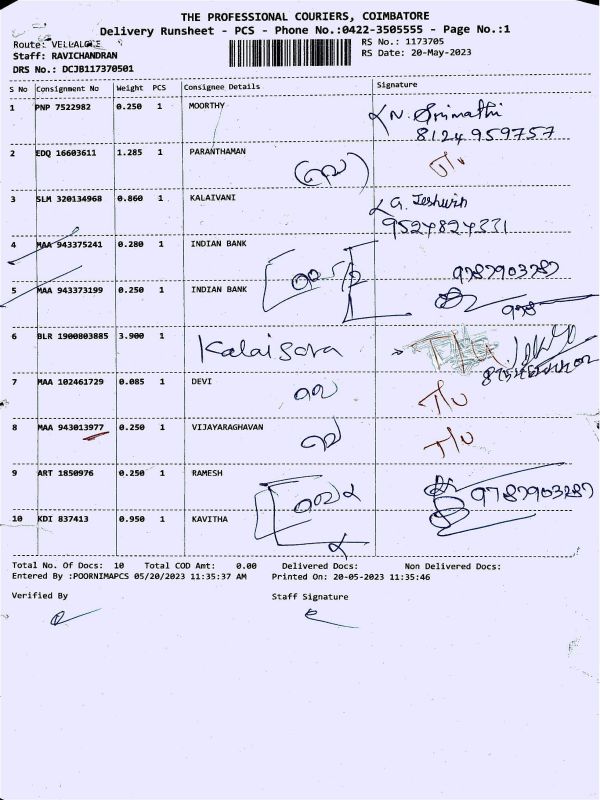 THE PROFESSIONAL COURIERS, COIMBATORE
Delivery Runsheet - PCS - Phone No.:0422-3505555 - Page No.:1
Route: VELLALORE RS No.: 1173705
Staff: RAVICHANDRAN RS Date: 20-May-2023
DRS No.: DCJB117370501
S No Consignment No Weight PCS Consignee Details Signature
1 PNP 7522982 0.250 1 MOORTHY N. Srimathi
8124959757
2 EDQ 16603611 1.285 1 PARANTHAMAN
3 SLM 320134968 0.860 1 KALAIVANI G. Jeshwin
9524824331
4 MAA 943375241 0.280 1 INDIAN BANK 9787903287
5 MAA 943373199 0.250 1 INDIAN BANK
6 BLR 1900803885 3.900 1
7 MAA 102461729 0.085 1 DEVI
8 MAA 943013977 0.250 1 VIJAYARAGHAVAN
9 ART 1850976 0.250 1 RAMESH 9787903287
10 KDI 837413 0.950 1 KAVITHA
Total No. Of Docs: 10 Total COD Amt: 0.00 Delivered Docs: Non Delivered Docs:
Entered By :POORNIMAPCS 05/20/2023 11:35:37 AM Printed On: 20-05-2023 11:35:46
Verified By Staff Signature